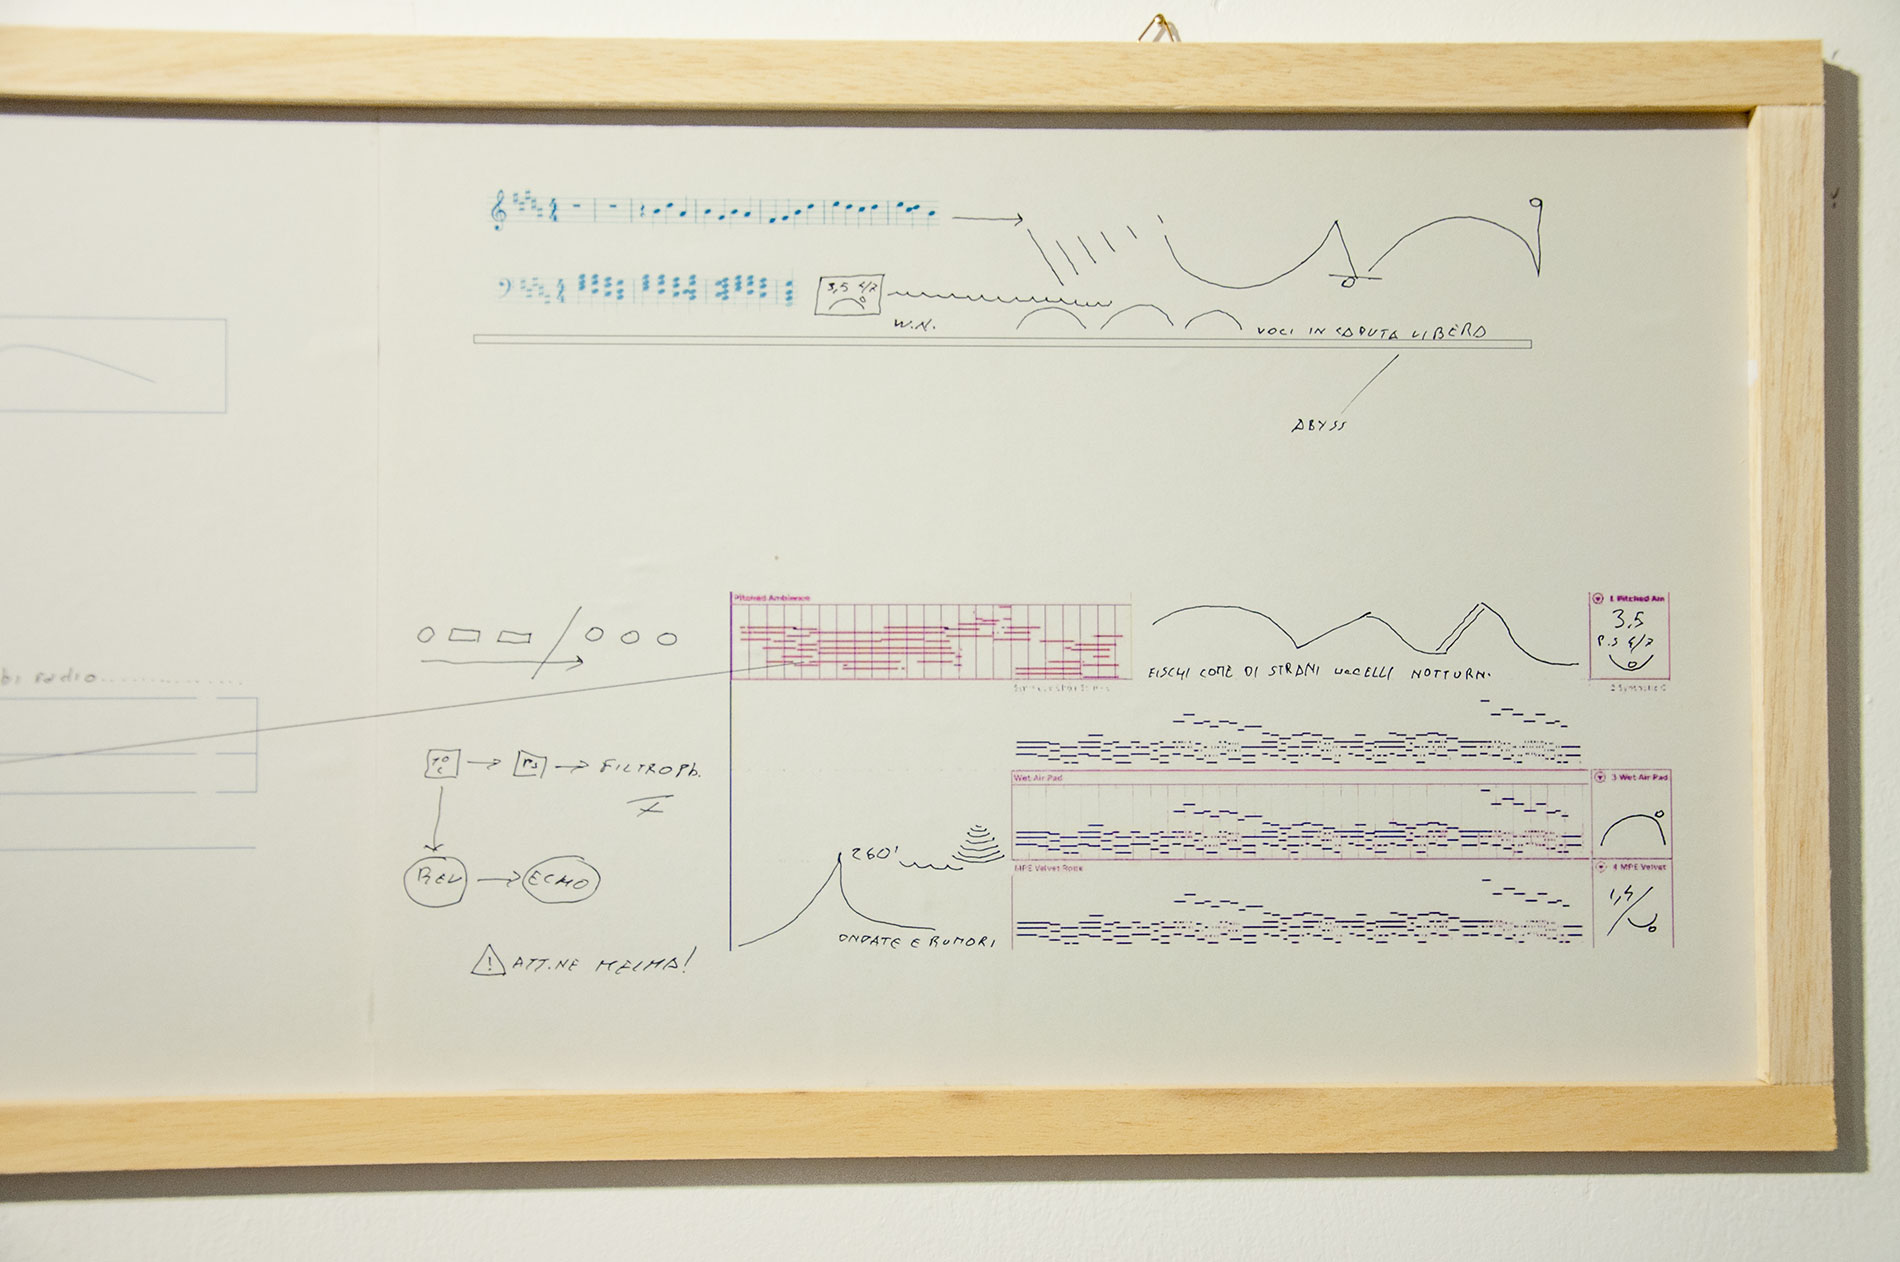 3,5 4/7
W.N.
VOCI IN CADUTA LIBERA
ABYSS
Pitched Ambience
1 Pitched Air
3,5
P.S 4/7
FISCHI COME DI STRANI UCCELLI NOTTURNI
radio..................
PS
FILTRO Pb.
REV
ECHO
Wet Air Pad
3 Wet Air Pad
260'
MPE Velvet Rode
4 MPE Velvet
1,4
ONDATE E RUMORI
! ATT.NE MELMA!